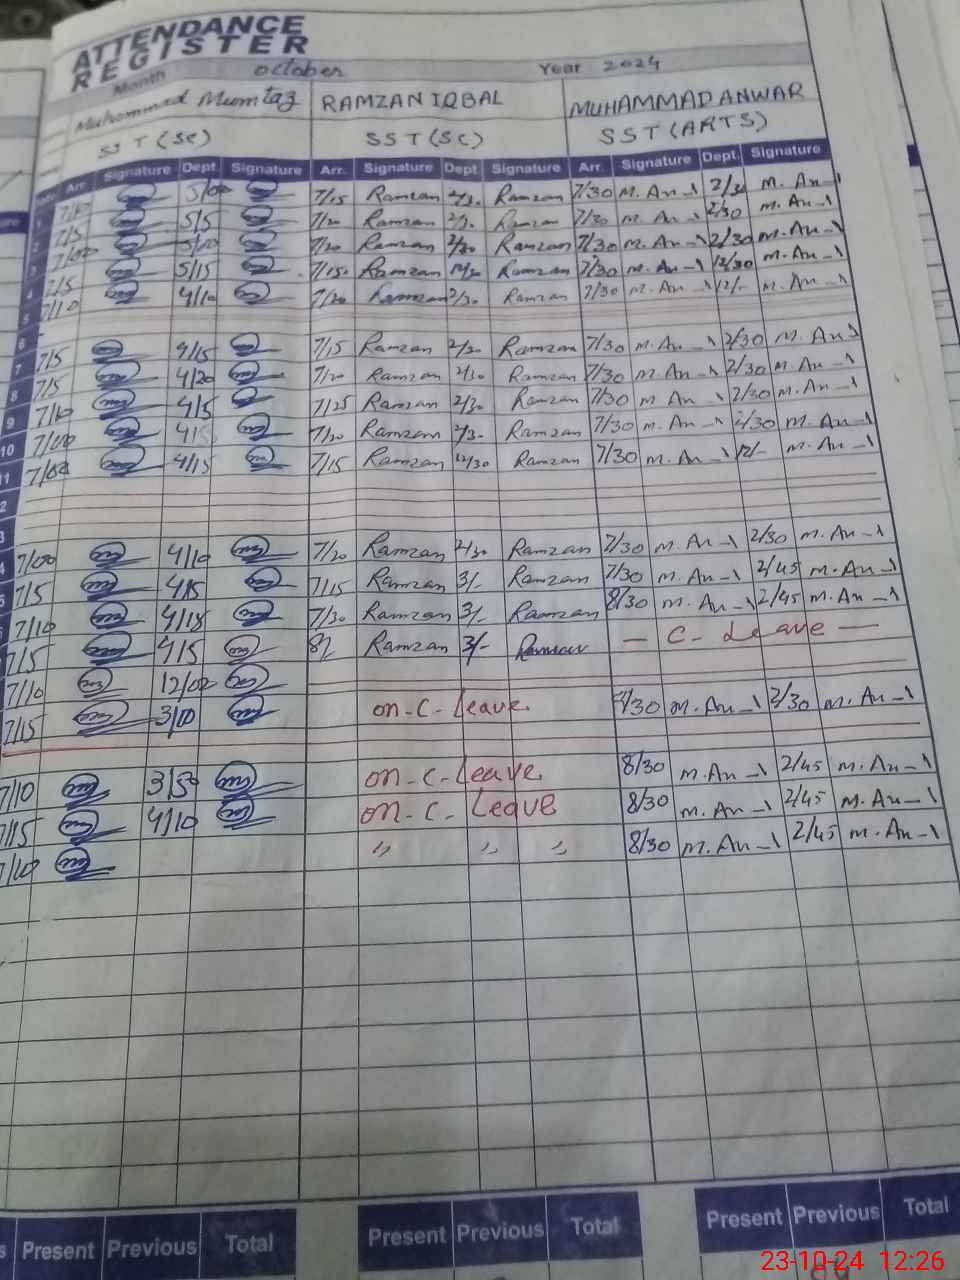 ATTENDANCE
REGISTER
Month October Year 2024
Muhammad Mumtaz RAMZAN IQBAL MUHAMMAD ANWAR
SST (SC) SST (SC) SST (ARTS)
Arr. Signature Dept. Signature Arr. Signature Dept. Signature Arr. Signature Dept. Signature
1 5/00 7/15 Ramzan 2/30 Ramzan 7/30 M. An 2/30 M. An
2 7/5 5/5 7/20 Ramzan 2/30 Ramzan 7/30 M. An 2/30 M. An
3 7/00 5/10 7/20 Ramzan 2/30 Ramzan 7/30 M. An 2/30 M. An
4 7/5 5/15 7/15 Ramzan 12/30 Ramzan 7/30 M. An 12/30 M. An
5 7/10 4/10 7/20 Ramzan 2/30 Ramzan 7/30 M. An 12/- M. An
6
7 7/5 4/15 7/15 Ramzan 2/30 Ramzan 7/30 M. An 2/30 M. An
8 7/5 4/20 7/20 Ramzan 2/30 Ramzan 7/30 M. An 2/30 M. An
9 7/10 4/5 7/25 Ramzan 2/30 Ramzan 7/30 M. An 2/30 M. An
10 7/00 7/20 Ramzan 2/30 Ramzan 7/30 M. An 2/30 M. An
11 7/00 4/15 7/15 Ramzan 12/30 Ramzan 7/30 M. An 12/- M. An
2
3
4 7/00 4/10 7/20 Ramzan 2/30 Ramzan 7/30 M. An 2/30 M. An
5 7/5 4/15 7/15 Ramzan 3/- Ramzan 7/30 M. An 2/45 M. An
7/10 4/15 7/30 Ramzan 3/- Ramzan 8/30 M. An 2/45 M. An
7/5 4/5 8/ Ramzan 3/- Ramzan — C- Leave —
7/10 12/00
7/15 3/10 on-C-Leave. 8/30 M. An 2/30 M. An
7/10 3/50 on-C-Leave. 8/30 M. An 2/45 M. An
7/15 4/10 on-C- Leave 8/30 M. An 2/45 M. An
7/10 〃 〃 〃 8/30 M. An 2/45 M. An
Present Previous Total Present Previous Total Present Previous Total
23-10-24 12:26